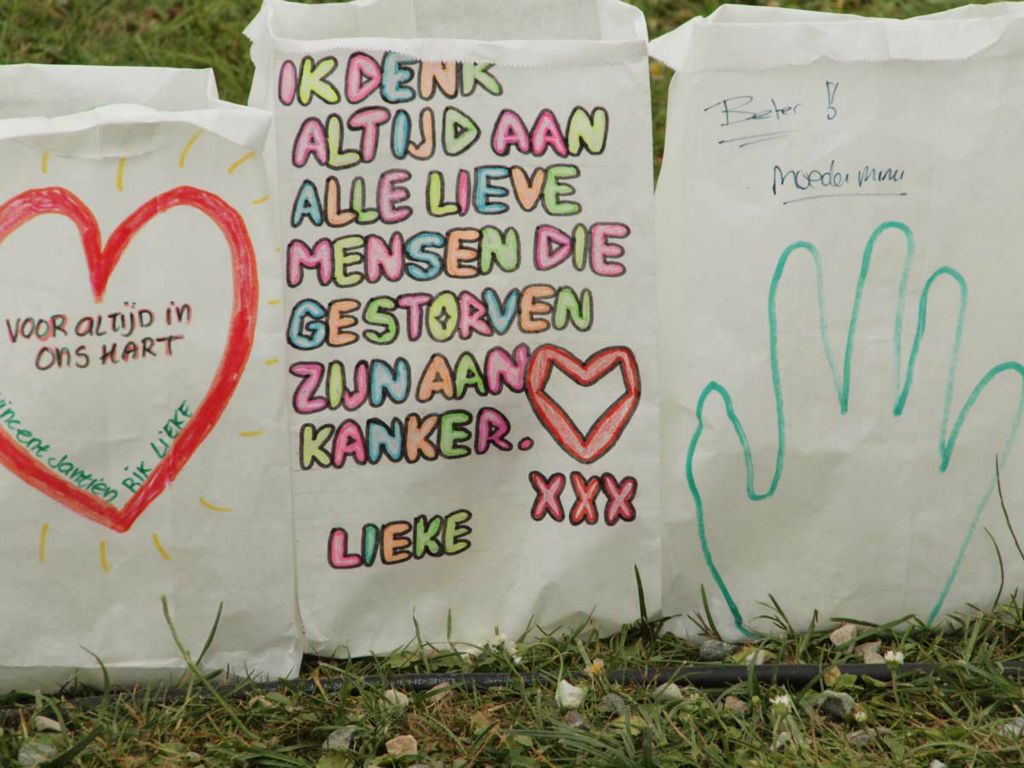 VOOR ALTIJD in
ONS HART
Vincent Jantien RIK LIEKE
IK DENK
ALTIJD AAN
ALLE LIEVE
MENSEN DIE
GESTORVEN
ZIJN AAN
KANKER.
XXX
LIEKE
Beter!